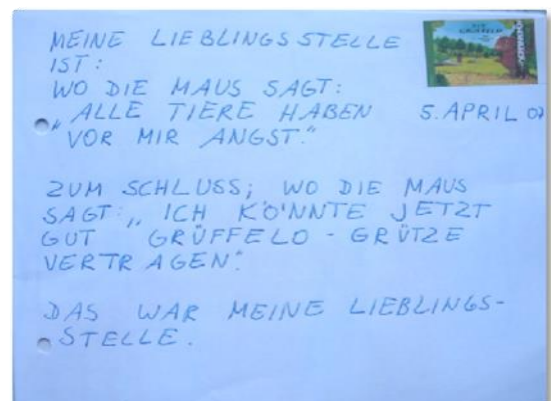 MEINE LIEBLINGSSTELLE
IST:
WO DIE MAUS SAGT:
„ALLE TIERE HABEN
VOR MIR ANGST."
5. APRIL 07
ZUM SCHLUSS; WO DIE MAUS
SAGT: „ICH KÖNNTE JETZT
GUT GRÜFFELO-GRÜTZE
VERTRAGEN".
DAS WAR MEINE LIEBLINGS-
STELLE.